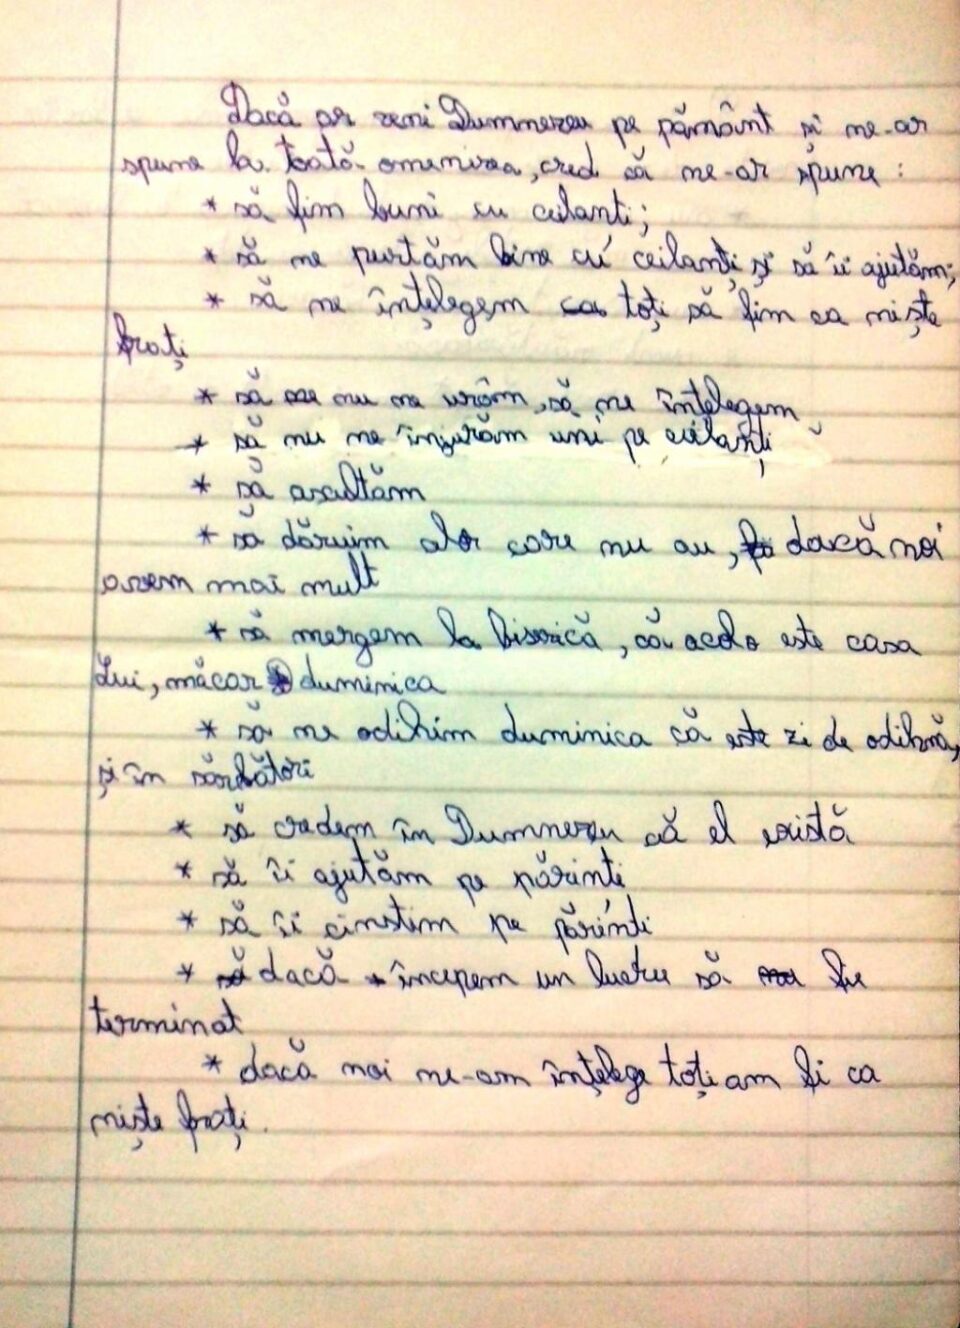 Dacă ar veni Dumnezeu pe pământ și ne-ar
spune la toată omenirea, cred că ne-ar spune:
* să fim buni cu ceilanti;
* să ne purtăm bine cu ceilanți și să îi ajutăm;
* să ne înțelegem ca toți să fim ca niște
frați
* să nu ne urâm, să ne înțelegem
* să nu ne înjurăm uni pe ceilanți
* să ascultăm
* să dăruim alor care nu au, dacă noi
avem mai mult
* să mergem la biserică, că acolo este casa
Lui, măcar duminica
* să ne odihim duminica că este zi de odihnă,
și în sărbători
* să credem în Dumnezeu că el există
* să îi ajutăm pe părinti
* să îi cinstim pe părinti
* dacă începem un lucru să fie
terminat
* dacă noi ne-am înțelege toți am fi ca
niște frați.